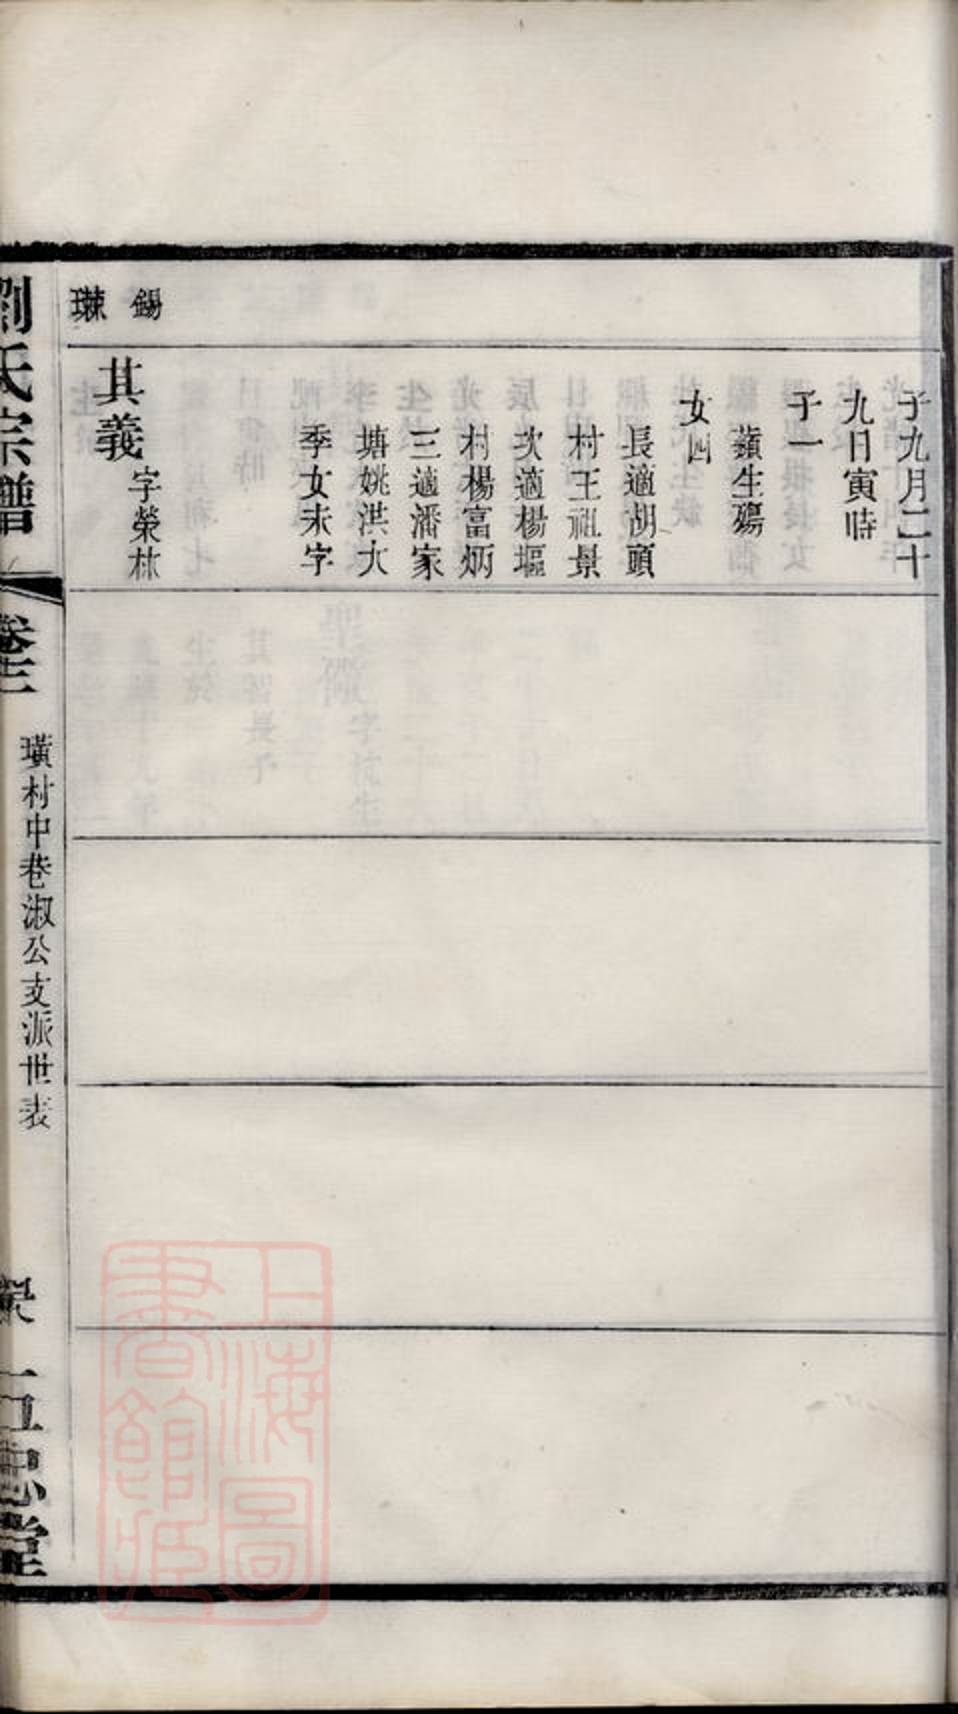 子九月二十
九日寅時
子一
蘋生殤
女四
長適胡頭
村王祖景
次適楊堀
村楊富炳
三適潘家
塘姚洪大
季女未字
錫
其義
字榮林
劉氏宗譜
卷三
璜村中巷淑公支派世表
五忠堂
上海圖
書館藏